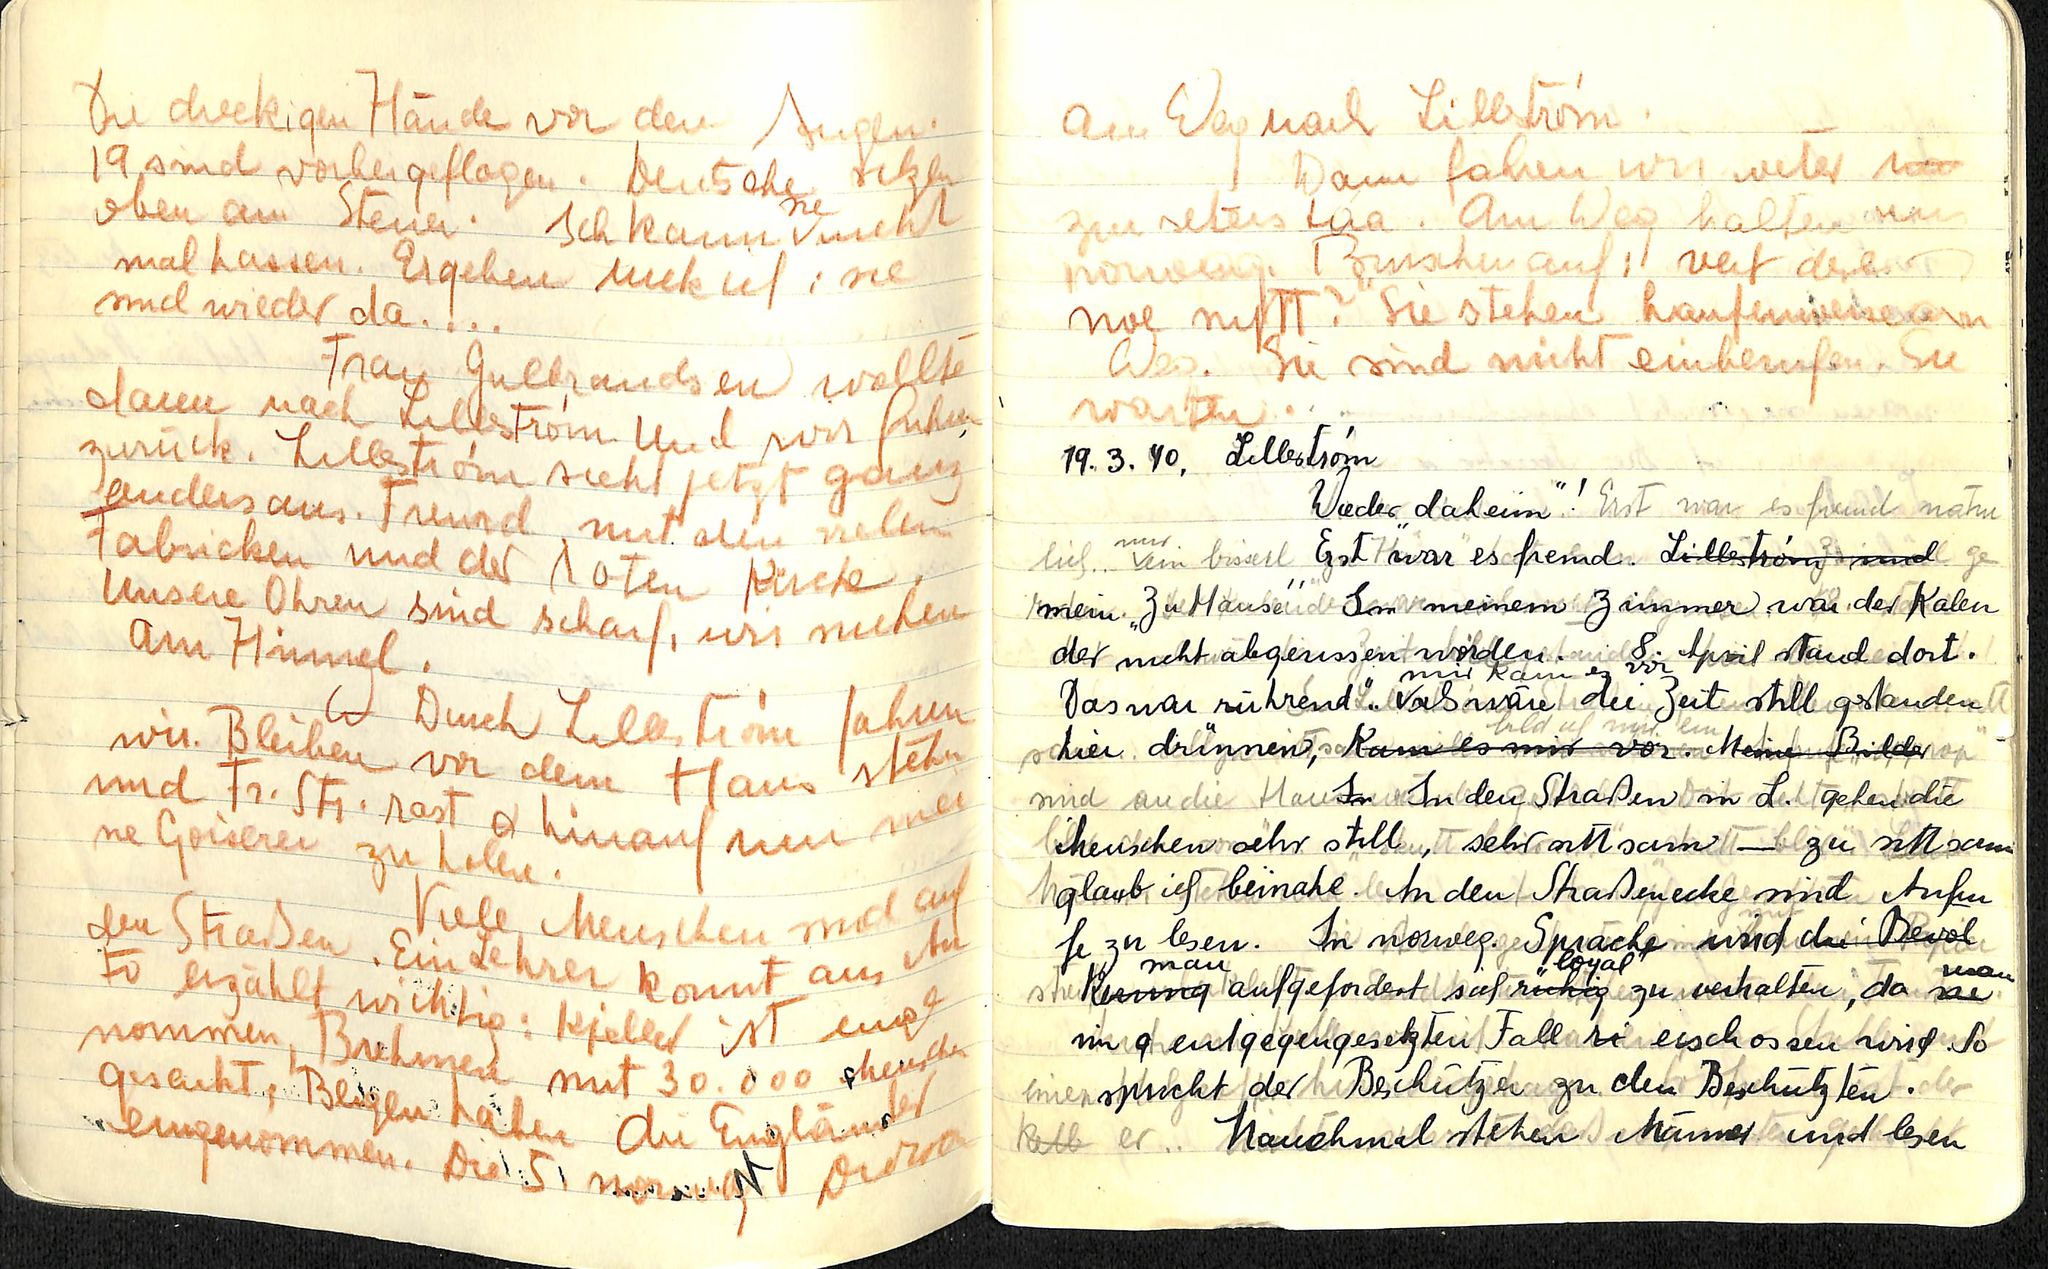 Die dreckigen Hände vor den Augen.
19 sind vorbeigeflogen. Deutsche sitzen
oben am Steuer. Ich kann sie nicht
mal hassen. Ergeben duck ich: sie
sind wieder da....
Frau Gulbrandsen wollte
dann nach Lilleström. Und wir fuhren
zurück. Lilleström sieht jetzt ganz
anders aus. Fremd mit den vielen
Fabricken und der roten Kirche.
Unsere Ohren sind scharf, wir suchen
am Himmel.
Durch Lilleström fahren
wir. Bleiben vor dem Haus stehn
und Fr. Str. rast hinauf um mei
ne Goiserer zu holen.
Viele Menschen sind auf
den Straßen. Ein Lehrer kommt aus Au
to erzählt wichtig: Kjeller ist einge
nommen, Bremen mit 30.000 Menschen
gesenkt, Bergen haben die Engländer
eingenommen. Die 5. norweg. Diviso
am Weg nach Lilleström.
Dann fahren wir weiter
zum. Am Weg halten uns
norweg. Burschen auf: "vet dere
noe nytt?" Sie stehen haufenweise am
Weg. Sie sind nicht einberufen. Sie
warten.
19. 3. 40. Lilleström
"Wieder daheim"! Erst war es fremd natür
lich.. nur ein bisserl Erst war es fremd. Lilleström und
mein "Zu Hause" In meinem Zimmer war der Kalen
der nicht abgerissen worden. 8. April stand dort.
Das war rührend. mir kam es vor Als wäre die Zeit still gestanden
hier drinnen, Kam es mir vor. Meine Bilder
sind an die In In den Straßen in L. gehen die
Menschen sehr still, sehr sittsam — zu sittsam
glaub ich beinahe. An den Straßenecke sind Aufru
fe zu lesen. In norweg. Sprache wird die Bevöl
kerung man aufgefordert sich ruhig "loyal" zu verhalten, da sie man
im entgegengesetzten Fall erschossen wird. So
spricht der Beschützer zu den Beschützten.
er.. Manchmal stehen Männer und lesen